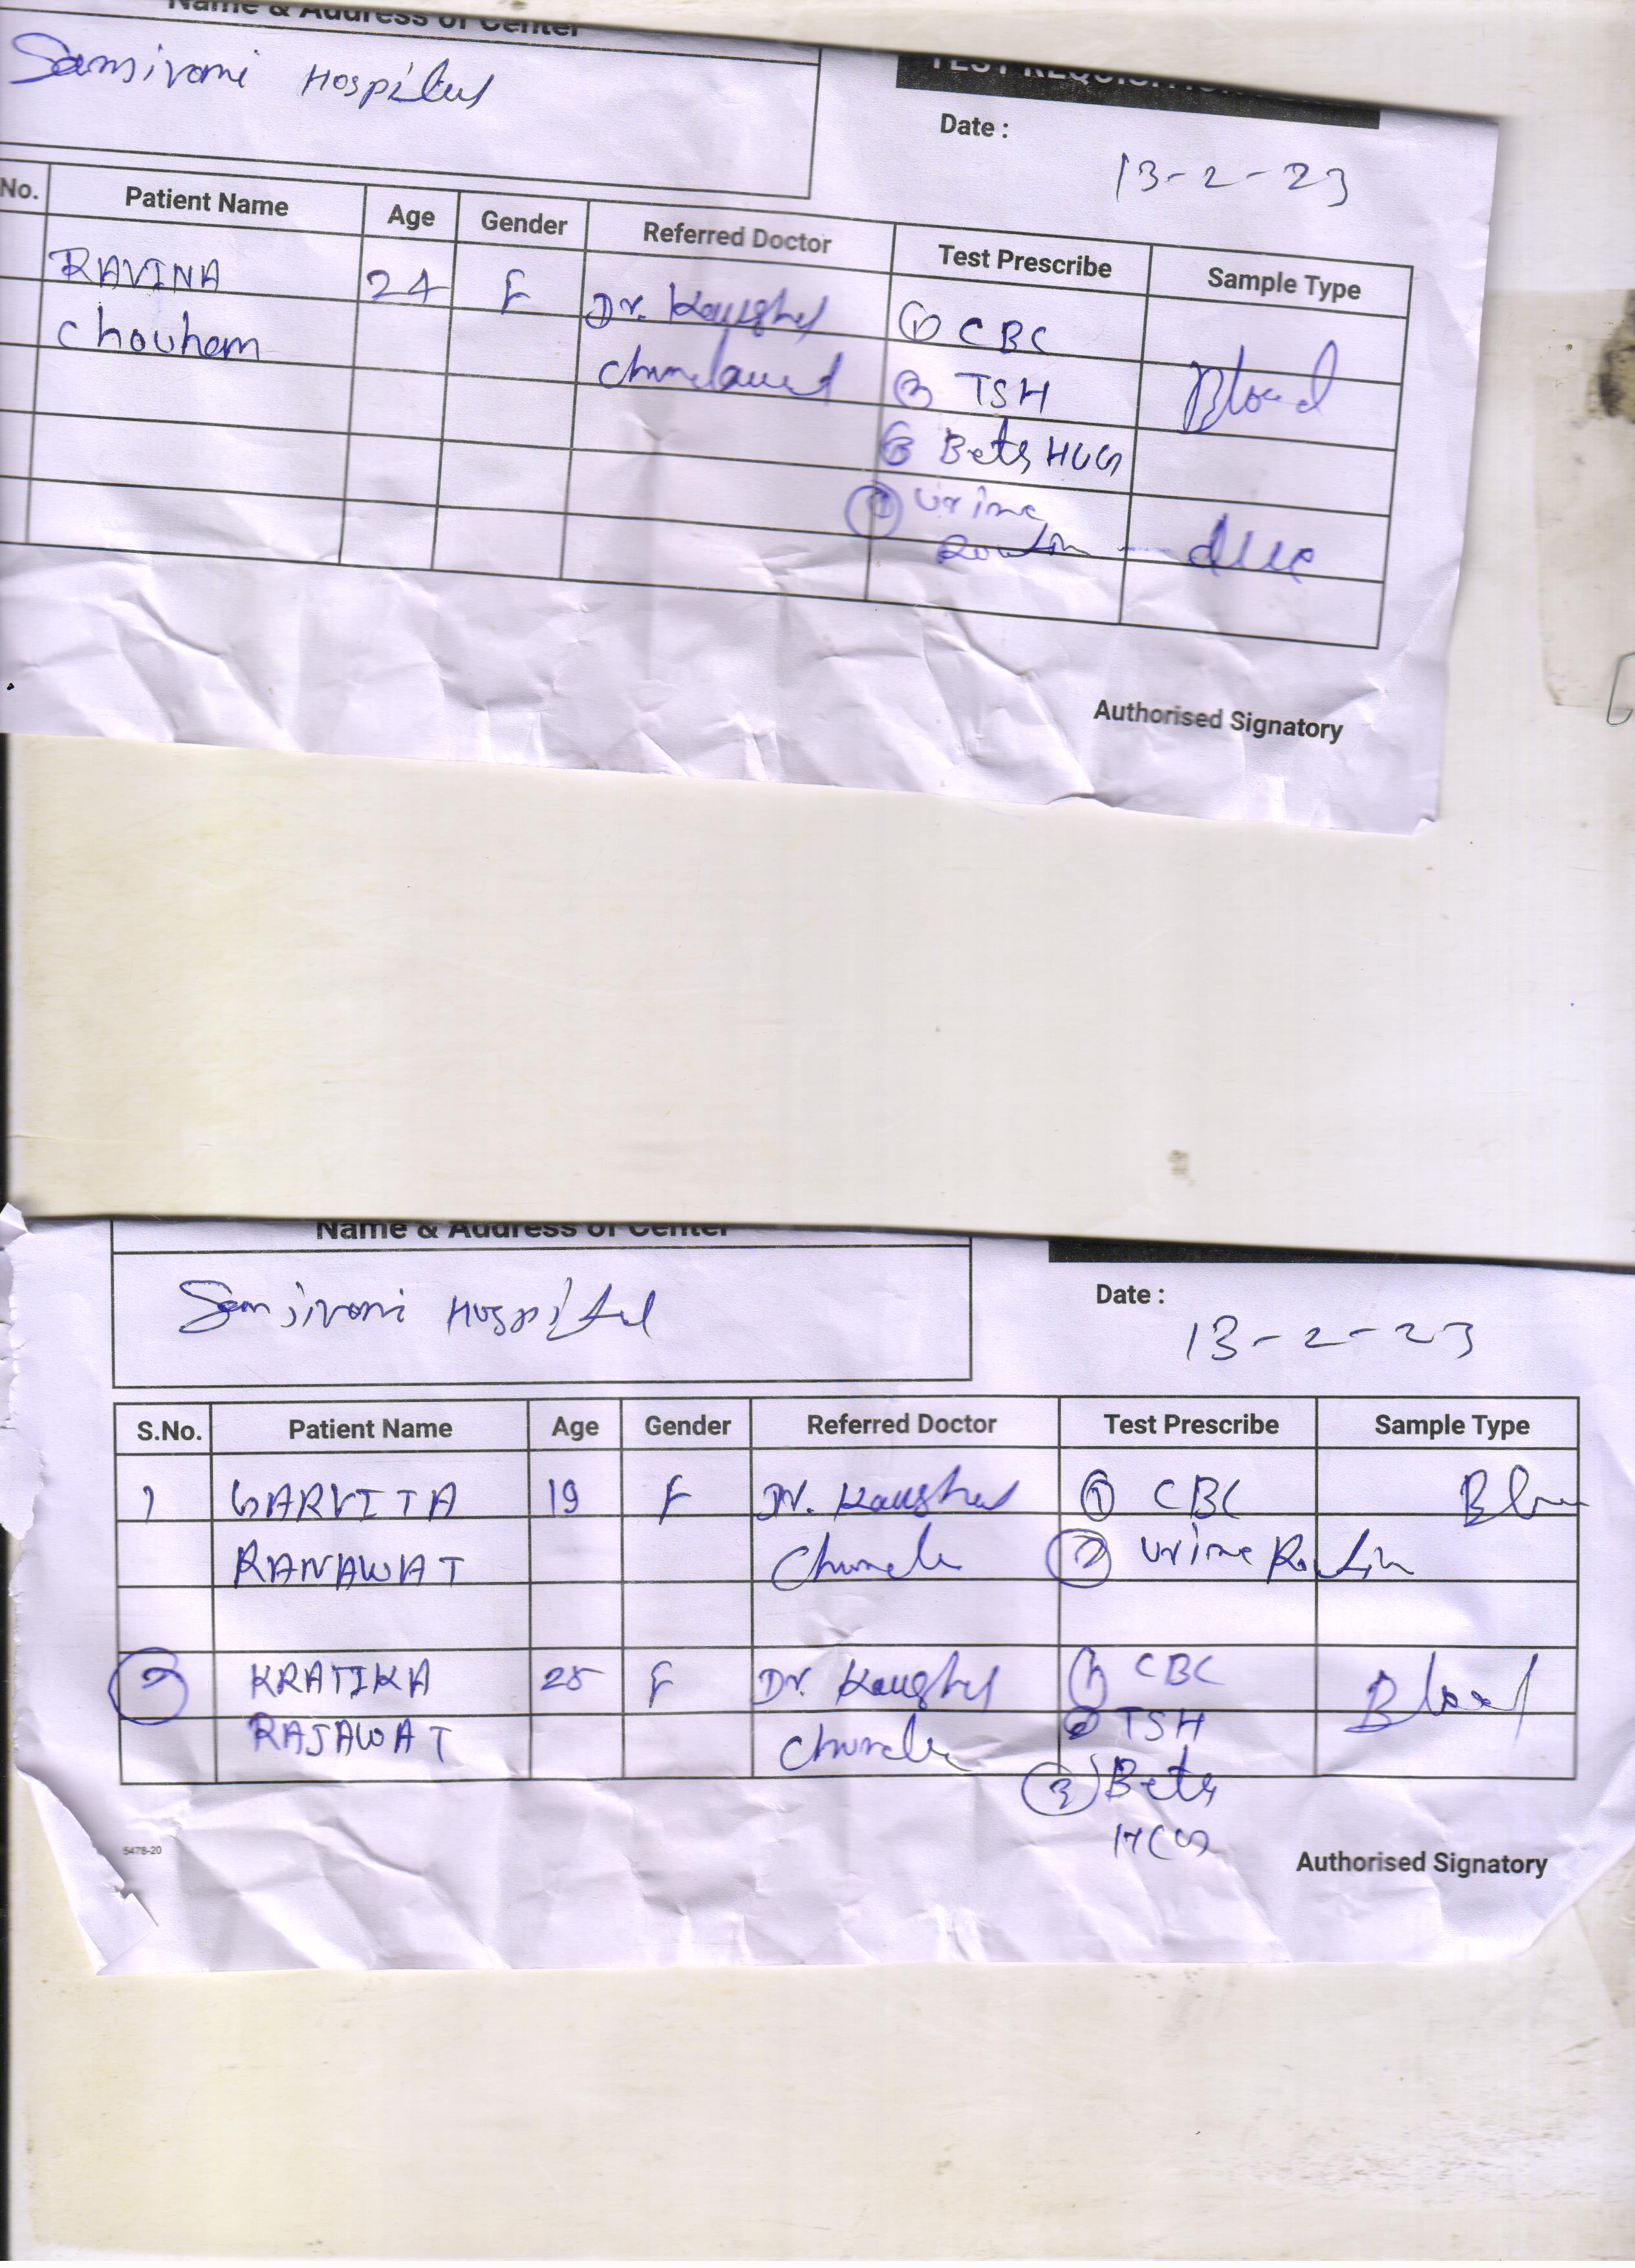 Name & Address of Center
Sansivani Hospital
TEST REQUISITION
Date :
13-2-23
No. Patient Name Age Gender Referred Doctor Test Prescribe Sample Type
RAVINA 24 F Dr. Kaushal ① CBC
Chouhan ② TSH Blood
③ Beta HCG
④ Urine
Routin - due
Authorised Signatory
Name & Address of Center
Sanjivani Hospital
Date :
13-2-23
S.No. Patient Name Age Gender Referred Doctor Test Prescribe Sample Type
1 GARVITA 19 F Dr. Kaushal ① CBC
RANAWAT ② Urine Routin
② KRATIKA F Dr. Kaushal ① CBC Blood
RAJAWAT ② TSH
③ Beta
HCG
5478-20
Authorised Signatory